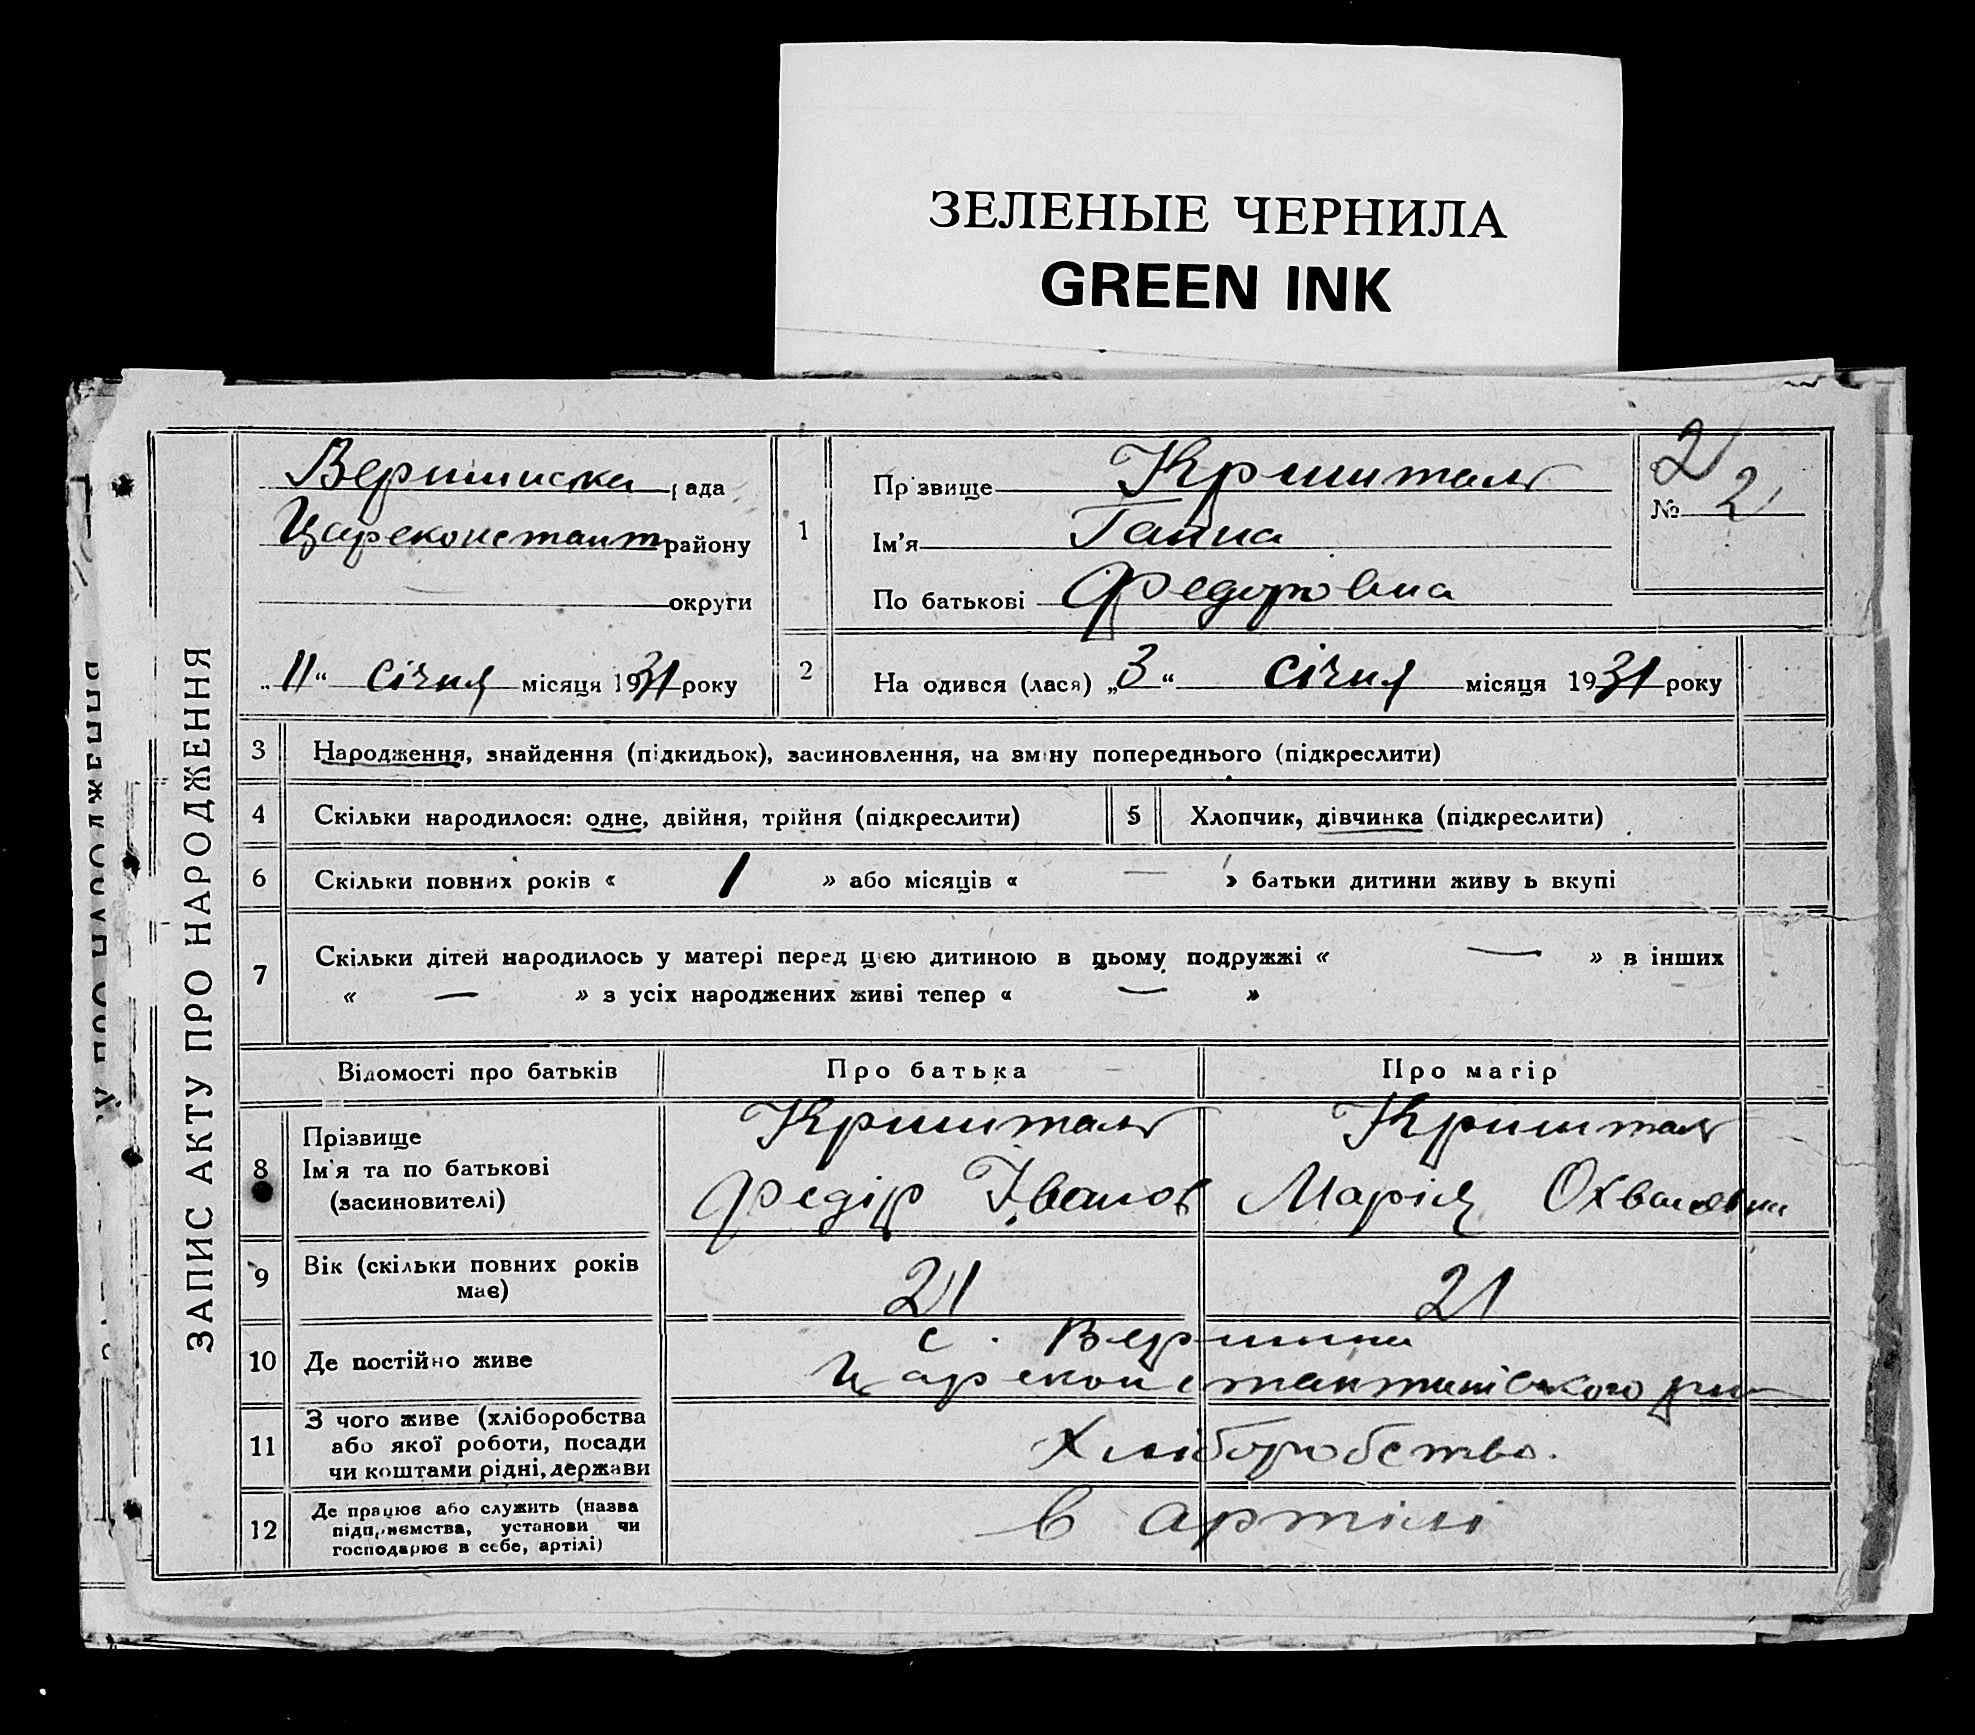 ЗЕЛЕНЫЕ ЧЕРНИЛА
GREEN INK
ЗАПИС АКТУ ПРО НАРОДЖЕННЯ
Вершинска рада
Цареконстант району
округи
„11“ січня місяця 1931 року
1
Прізвище Кришталь
Ім'я Ганна
По батькові Федоровна
2
№ 2
2 На одився (лася) „3“ січня місяця 1931 року
3 Народження, знайдення (підкидьок), засиновлення, на зміну попереднього (підкреслити)
4 Скільки народилося: одне, двійня, трійня (підкреслити) 5 Хлопчик, дівчинка (підкреслити)
6 Скільки повних років « 1 » або місяців « — » батьки дитини живу ь вкупі
7 Скільки дітей народилось у матері перед цією дитиною в цьому подружжі « — » в інших
« — » з усіх народжених живі тепер « — »
Відомості про батьків Про батька Про матір
8 Прізвище Кришталь Кришталь
Ім'я та по батькові Федір Іванов Марія
(засиновителі)
9 Вік (скільки повних років 21 21
має)
10 Де постійно живе с. Вершина
Цареконстантинівского
11 З чого живе (хліборобства
або якої роботи, посади Хліборобство.
чи коштами рідні, держави
12 Де працює або служить (назва в артілі
підприємства, установи чи
господарює в себе, артілі)